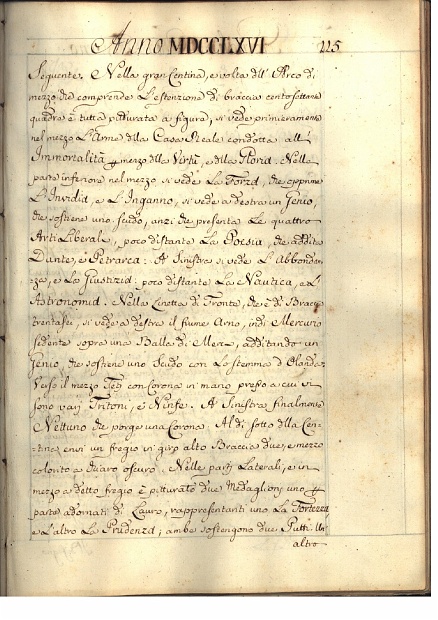 Anno MDCCLXVI 225
Seguente. Nella gran Centina, e volta dell' Arco di
mezzo, che comprende l'estenzione di braccia cento settanta
quadre è tutta pitturata a figura, si vede primieramente
nel mezzo L'Arme della Casa Reale condotta all'
Immortalità p mezzo della Virtù, e della Gloria. Nella
parte inferiore nel mezzo si vede La Forza, che opprime
L'Invidia, e L'Inganno, si vede a destra un Genio,
che sostiene uno scudo, anzi che presenta Le quattro
Arti Liberali, poco distante La Poesia, che addita
Dante, e Petrarca: A Sinistra si vede L'Abbondan-
za, e La Giustizia: poco distante La Nautica, e L'
Astronomia. Nella Linetta di Fronte, che è di Braccia
trentasei, si vede a destra il fiume Arno, indi Mercurio
sedente sopra una Balla di Merci, additando un
Genio, che sostiene uno Scudo con Lo stemma d'Olanda.
Verso il mezzo Teti con Corona in mano presso a cui vi
sono varj Tritoni, e Ninfe. A Sinistra finalmente
Nettuno che porge una Corona. Al di sotto della Cen-
tina evvi un fregio in giro alto Braccia due, e mezzo
colorito a chiaro oscuro. Nelle parti Laterali, e in
mezzo a detto fregio è pitturato due Medaglioni uno p
parte adornati di Lauro, rappresentanti uno La Fortezza
e L'altro La Prudenza; ambe sostengono due Putti. Un
altro